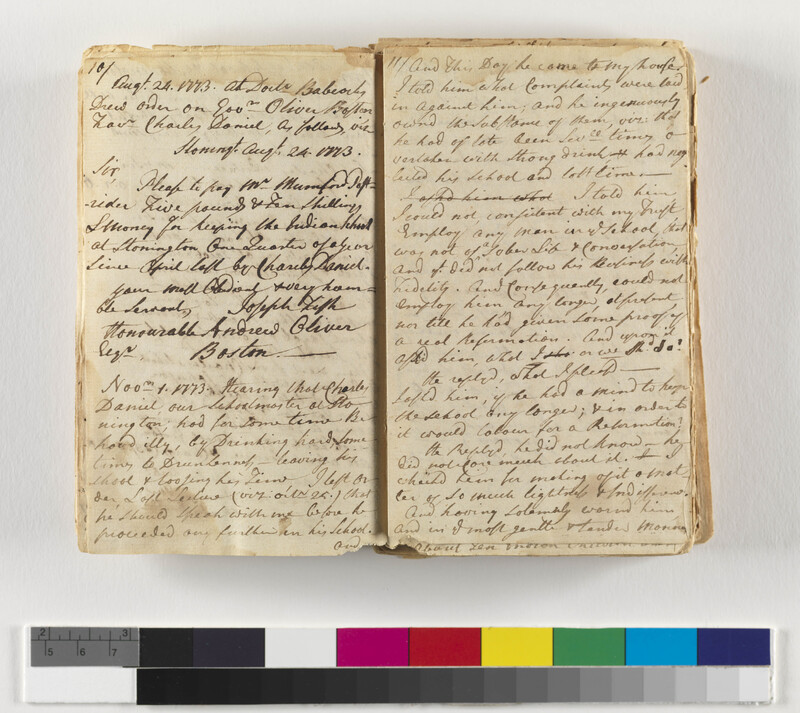 10/
Augt. 24. 1773. at Doctr. Babcocks
Drew order on Govr. Oliver Boston
Favr. Charles Daniel, as follows, viz
Stoningt. Augt. 24. 1773.
Sir,
Please to pay Mr. Mumford Post-
rider Five pounds & Ten Shillings
L Money for keeping the Indian School
at Stonington One Quarter of a year
Since April last by Charles Daniel.
your most Obedient & very hum-
ble Servant, Joseph Fish
Honourable Andrew Oliver
Esqr. Boston
Novm. 1. 1773. Hearing that Charles
Daniel our Schoolmaster at Sto
nington, had for some time Be
havd illy, by Drinking hard, some
times to Drunkenness, — leaving his
school & loosing his Time I left or
der, Last Lecture (viz. octr. 25.) that
he should speak with me before he
proceeded any further in his School.
and
11/ And this Day he came to my house.
I told him what Complaints were laid
in against him; and he ingenuously
ownd the Substance of them, viz. that
he had of late been Sevll. times o
vertaken with strong drink, & had neg
lected his school and lost time. —
I askd him what I told him
I could not, consistent with my Trust
Employ any man in ye School, that
was not of a Sober Life & Conversation,
And yt. did not follow his Business with
Fidelity. And Consequently, could not
employ him any longer, at present,
nor till he had given some proof of
a real Reformation. And upon it
askd him, what I sho or we Shd. do?
He replyd, what I pleasd —
I askd him, if he had a mind to keep
the school any longer; & in order to
it would labour for a Reformation?
He Replyd, he did not know — he
did not care much about it. — I
chided him for making of it a mat
ter of so much lightness & Indifference.
And having solemnly warnd him
and in ye most gentle & tender Manner
about ten Indian Children